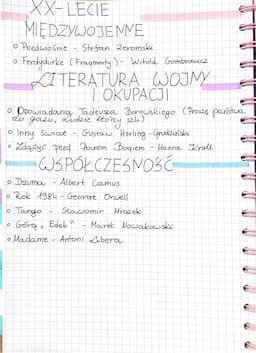 XX-LECIE
MIĘDZYWOJENNE
Przedwiośnie - Stefan Żeromski
Ferdydurke (Fragmenty) - Witold Gombrowicz
LITERATURA WOJNY
I OKUPACJI
Opowiadania Tadeusza Borowskiego (Proszę państwa
do gazu, Ludzie którzy szli)
Inny Świat - Gustaw Herling-Grudziński
Zdążyć przed Panem Bogiem - Hanna Krall
WSPÓŁCZESNOŚĆ
Dżuma - Albert Camus
Rok 1984 - George Orwell
Tango - Sławomir Mrożek
Górą „Edek" - Marek Nowakowski
Madame - Antoni Libera